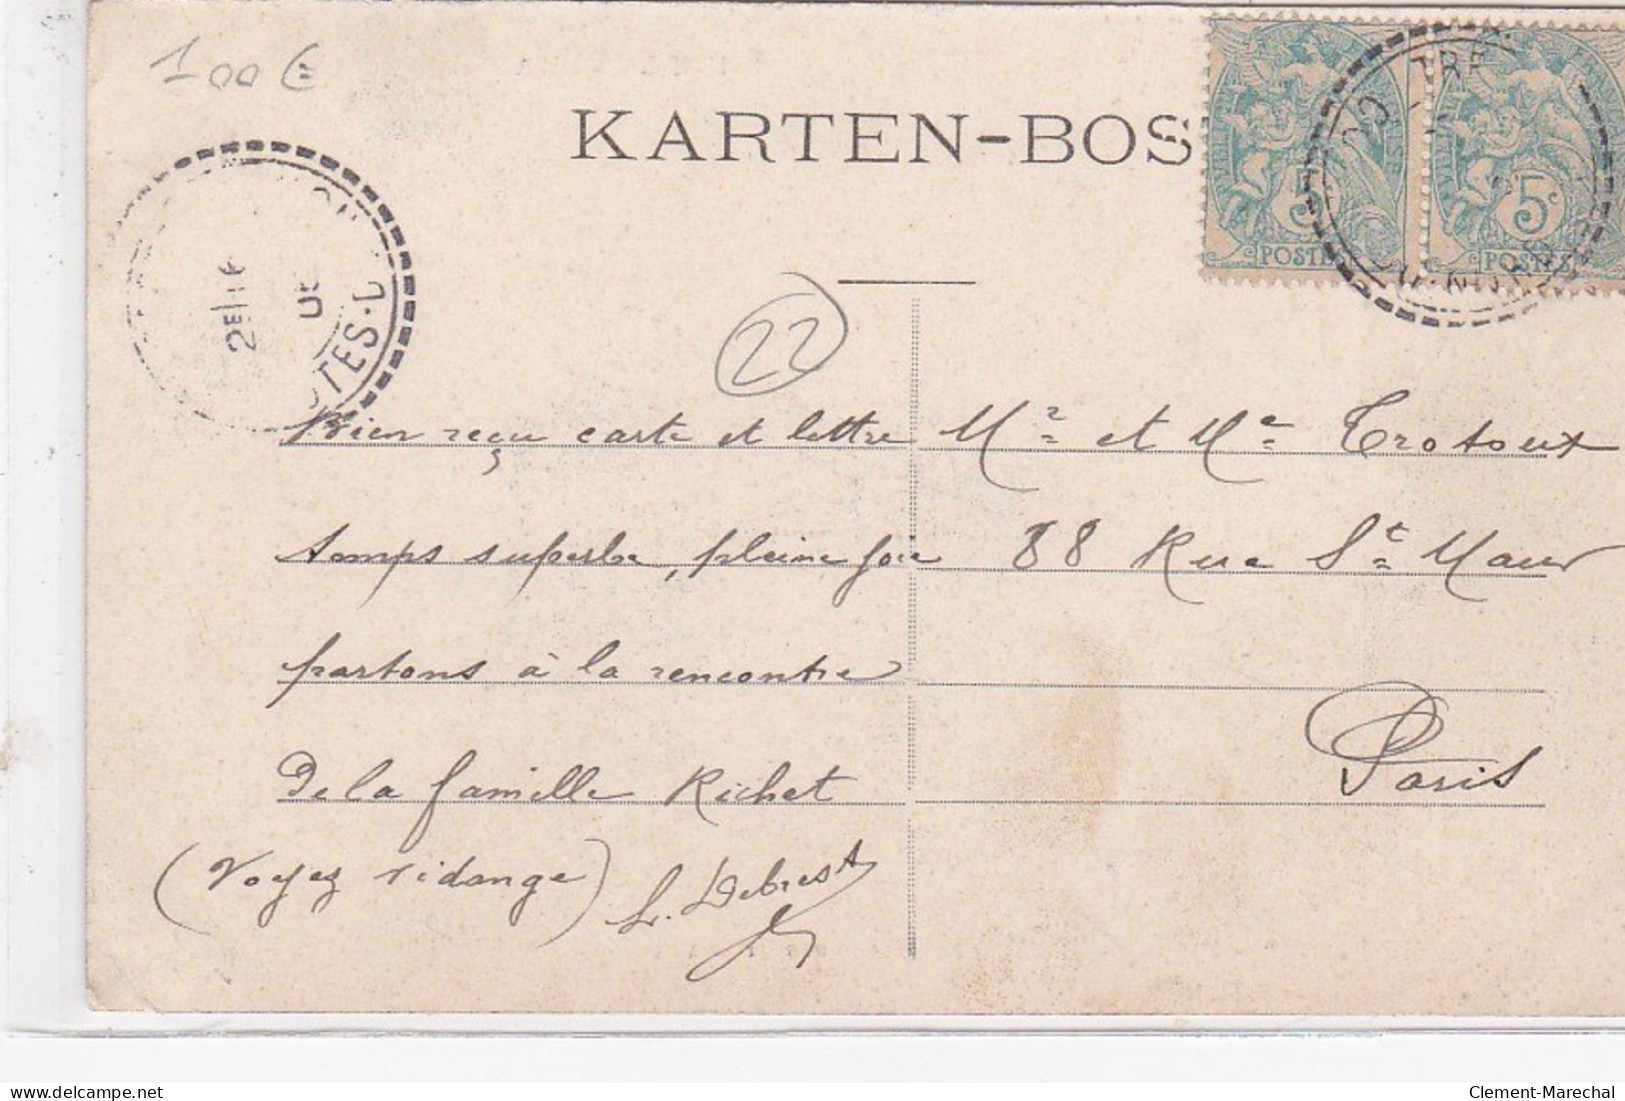 100€
KARTEN-BOS
5c
POSTES
5c
POSTES
2E/16
22
Bien reçu carte et lettre
temps superbe, pleine joie
partons à la rencontre
De la famille Richet
(Voyez vidange)
L. Debrest
Mr et Me Trotoux
88 Rue St Maur
Paris
Clement-Marechal